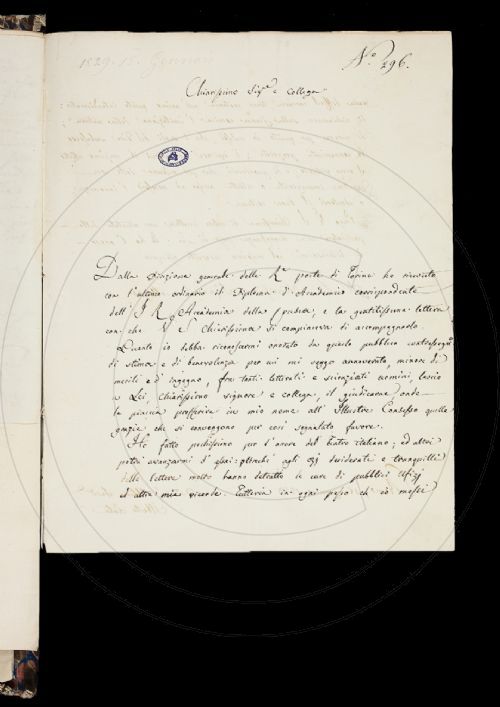 1829. 15. Gennaro
N.o 296.
Chiarissimo Sig.re e Collega
Dalla Direzione generale delle R.e poste di Torino ho ricevuto
con l'ultimo ordinario il Diploma di Accademico corrispondente
dell' I R Accademia della Crusca, e la gentilissima lettera
con che V S Chiarissima si compiaceva di accompagnarlo.
Quanto io debba riconoscermi onorato da questo pubblico contrassegno
di stima e di benevolenza per cui mi veggo annoverato, minore di
meriti e d'ingegno, fra tanti letterati e scienziati uomini, lascio
a Lei, Chiarissimo signore e collega, il giudicarne, onde
le piaccia profferire in mio nome all' Illustre Consesso quelle
grazie che si convengono per così segnalato favore.
Ho fatto pochissimo per l'onore del teatro italiano; ed altri
potei avanzarmi d' assai: perchè agli ozj desiderati e tranquilli
delle lettere molto hanno detratto le cure di pubblici Ufizj
ed altre mie vicende. Tuttavia in ogni passo ch' io mossi